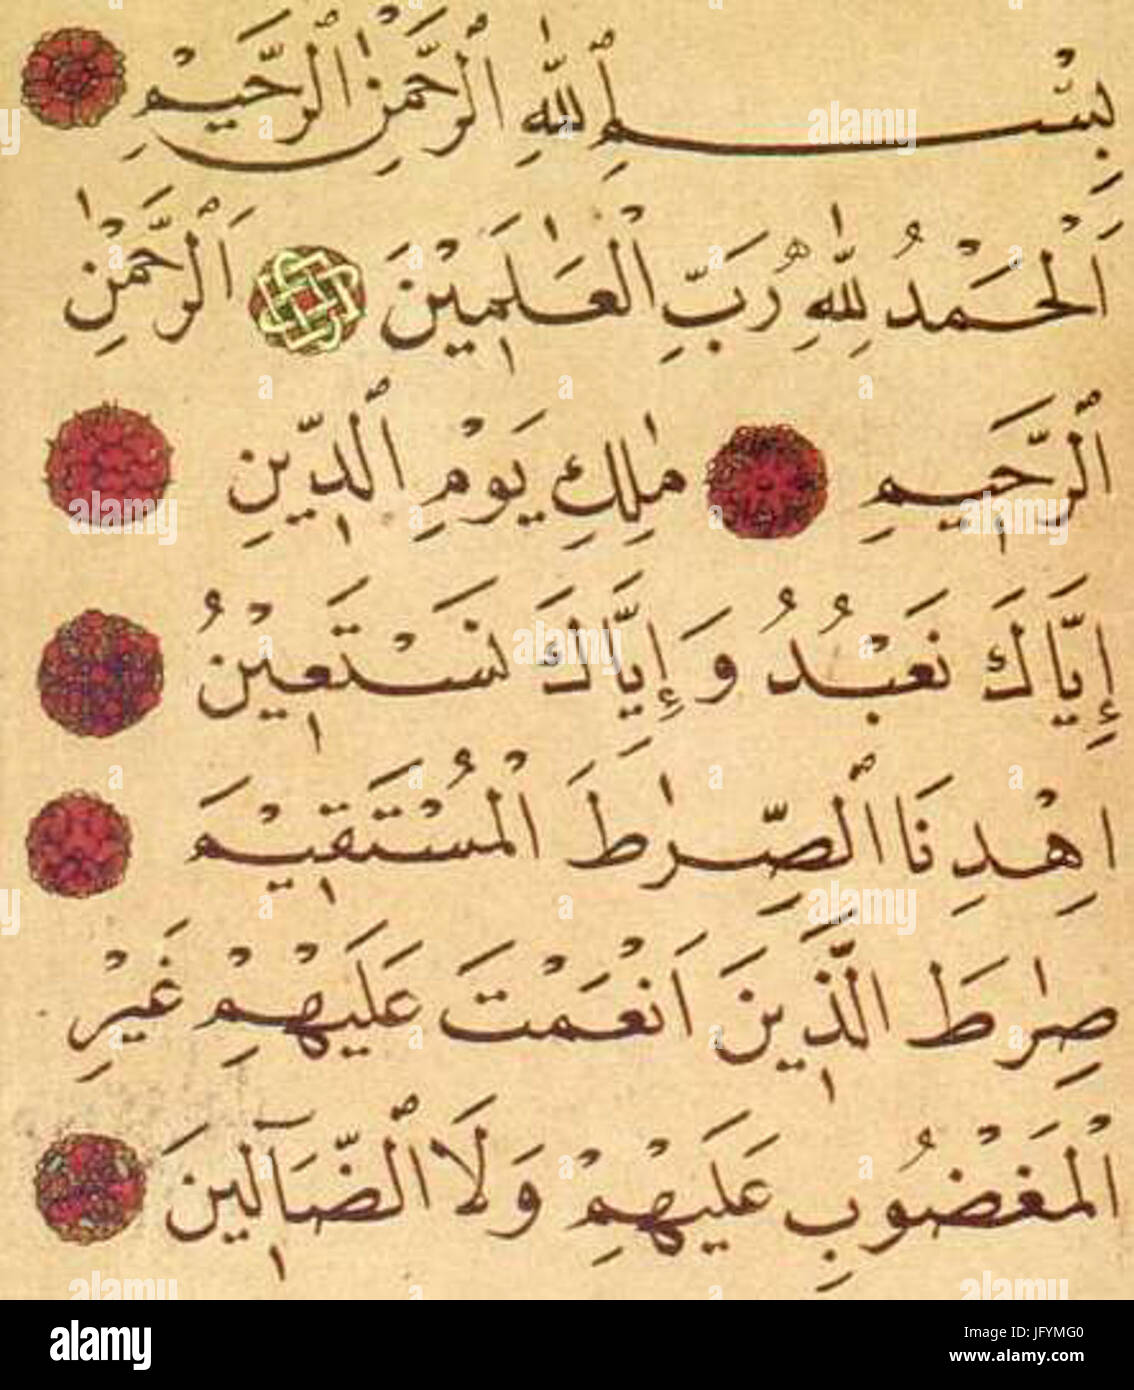 بِسْمِ ٱللَّهِ ٱلرَّحْمَٰنِ ٱلرَّحِيْمِ
اَلْحَمْدُ لِلّٰهِ رَبِّ الْعَٰلَمِيْنَ اَلرَّحْمٰنِ
ٱلرَّحِيمِ مَٰلِكِ يَوْمِ ٱلدِّينِ
إِيَّاكَ نَعْبُدُ وَإِيَّاكَ نَسْتَعِيْنُ
اِهْدِنَا ٱلصِّرَٰطَ الْمُسْتَقِيْمَ
صِرَٰطَ الَّذِينَ اَنْعَمْتَ عَلَيْهِمْ غَيْرِ
الْمَغْضُوبِ عَلَيْهِمْ وَلَا ٱلضَّآلِينَ
alamy
Image ID: JFYMG0
www.alamy.com